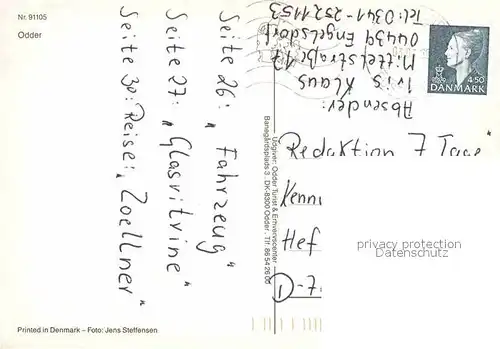 Nr. 91105
Odder
Seite 26: "Fahrzeug"
Seite 27: "Glasvitrine"
Seite 30: Reise: "Zoellner"
Absender:
Iris Klaus
Mittelstraße 17
04439 Engelsdorf
Tel: 0341-2521153
4.50
DANMARK
Udgiver: Odder Turist & Erhvervscenter
Banegårdsplads 3 . DK-8300 Odder . Tlf. 86 54 26 00
Redaktion 7 Tage
Kenn
Hef
D-7
privacy protection
Datenschutz
Printed in Denmark – Foto: Jens Steffensen